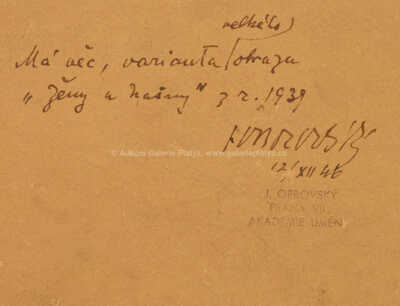 velkého
Má věc, varianta obrazu
„ženy u kašny" z r. 1939
J Obrovský
12/XII 46
© Aukční Galerie Platýz, www.galerieplatyz.cz
J. OBROVSKÝ
PRAHA VII.
AKADEMIE UMĚNÍ